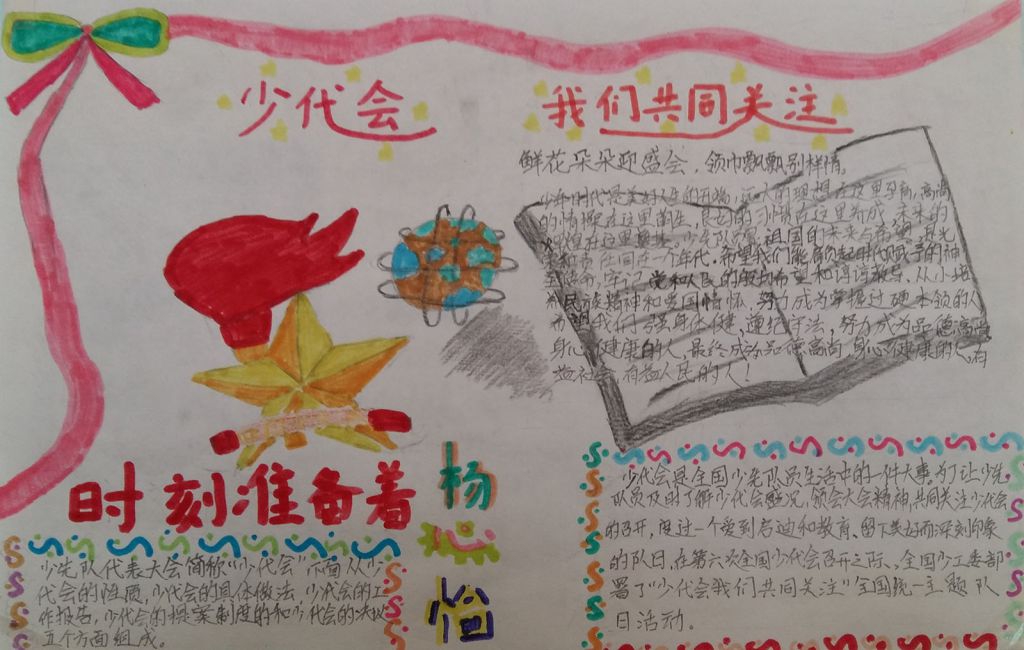 少代会 我们共同关注
鲜花朵朵迎盛会，领巾飘飘别样情。
少年时代是美好人生的开端，远大的理想在这里孕育，高尚
的情操在这里萌生，良好的习惯在这里养成，未来的
辉煌在这里
祖国的未来与希望
希望我们能肩负起时代赋予的神
圣使命，牢记党和人民的殷切希望和谆谆教导，从小培
养民族精神和爱国情怀，努力成为掌握过硬本领的人
希望我们强身体健，遵纪守法，努力成为品德高尚
身心健康的人，最终成为品德高尚，身心健康的人，有
益社会，有益人民的人！
时刻准备着
杨
心
怡
少先队代表大会简称“少代会”下面从少
代会的性质，少代会的具体做法，少代会的工
作报告，少代会的提案制度的和少代会的决议
五个方面组成。
少代会是全国少先队员生活中的一件大事，为了让少先
队员及时了解少代会盛况，领会大会精神，共同关注少代会
的召开，度过一个受到启迪和教育、留下美好而深刻印象
的队日，在第六次全国少代会召开之际，全国少工委部
署了“少代会我们共同关注”全国统一主题队
日活动。